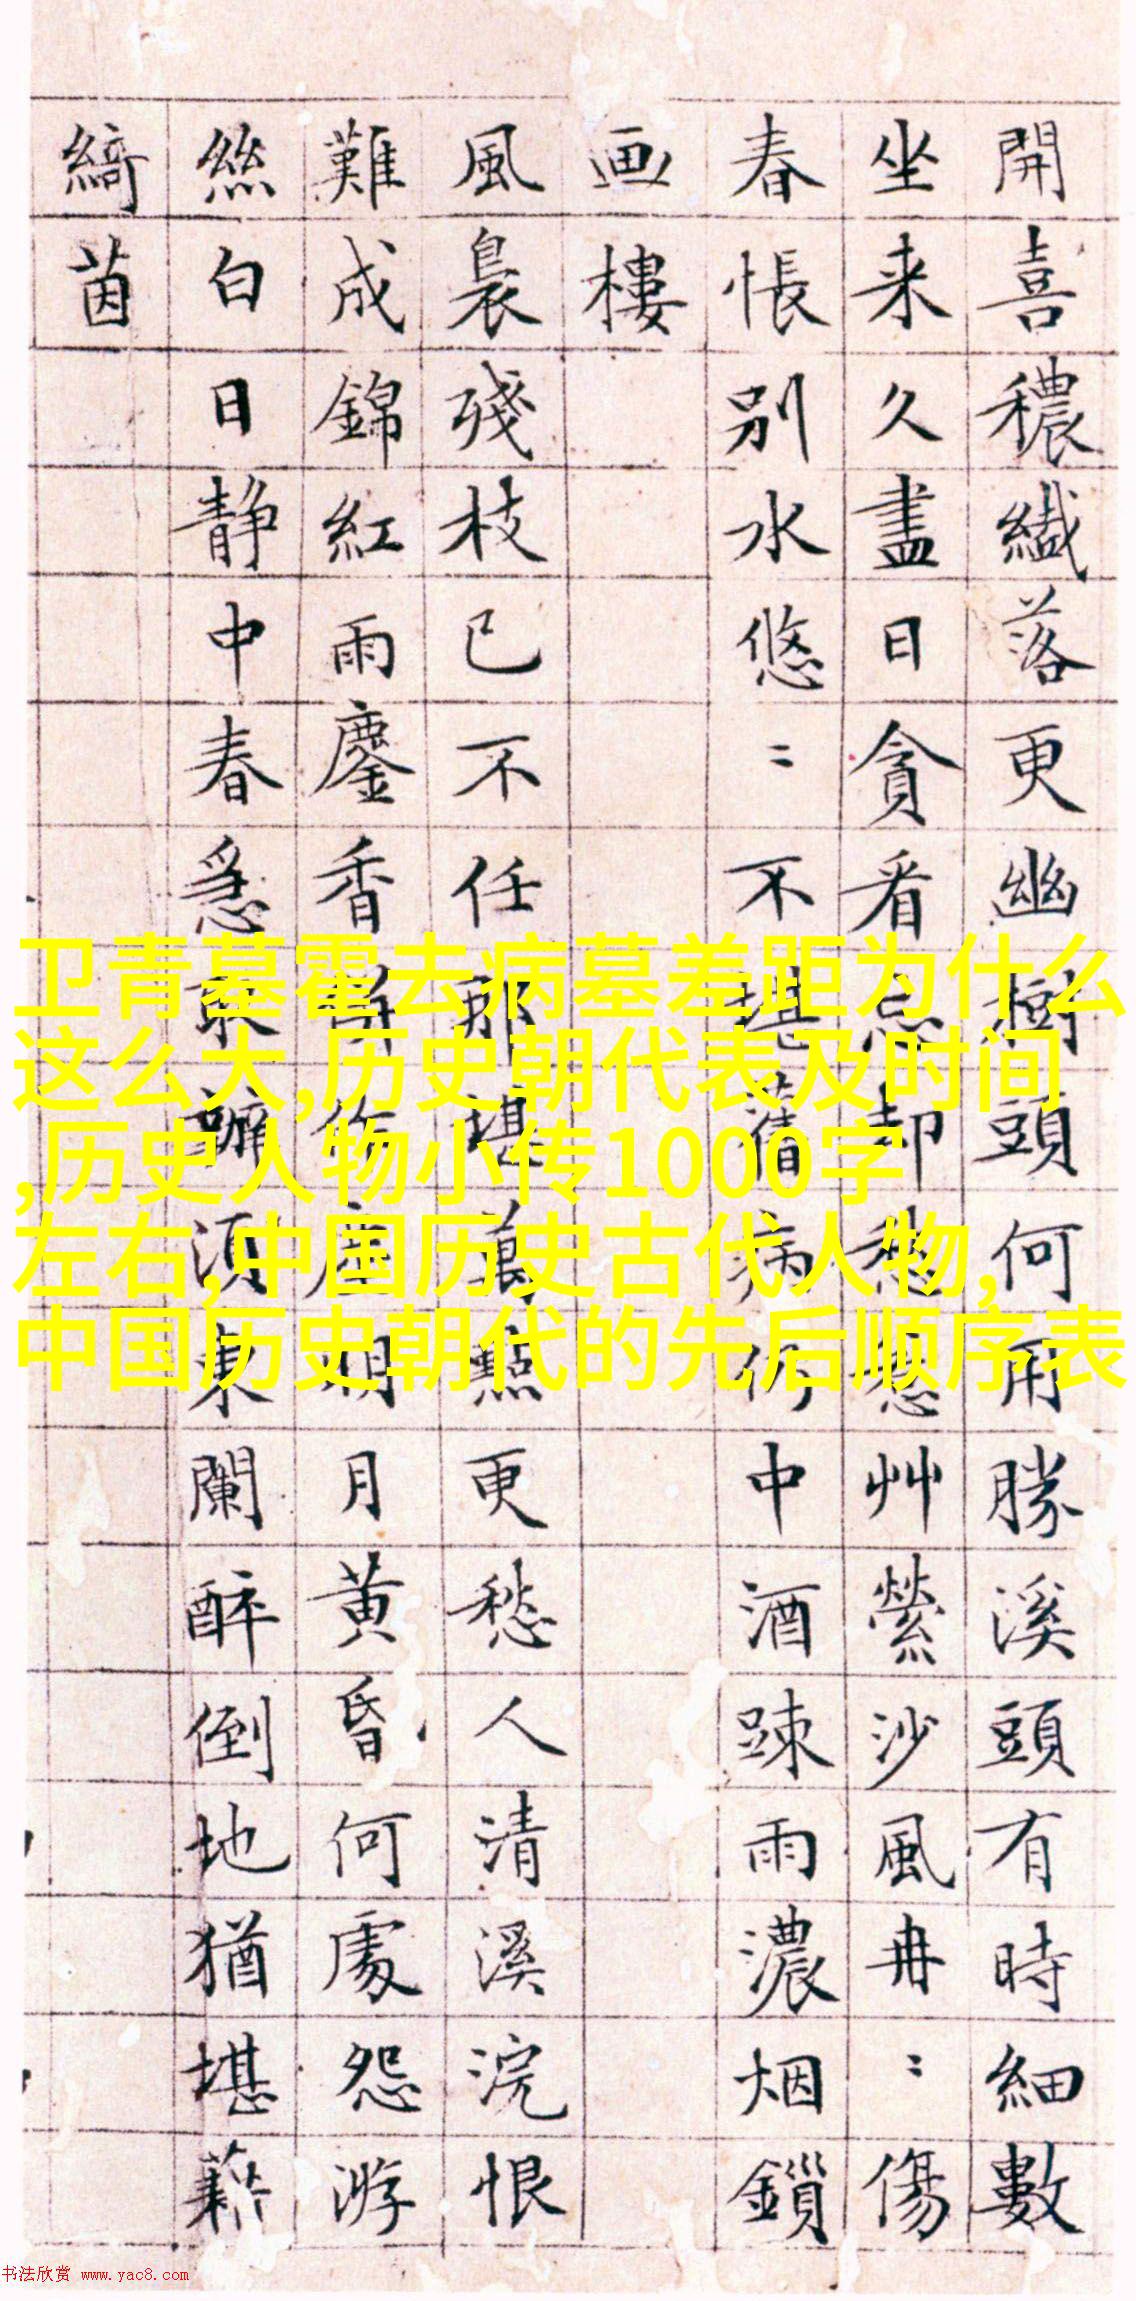 開喜穠纎落更幽樹頭何用勝溪頭有時細數
坐来久盡日貪看忘却愁惹艸縈沙風冉〻傷
春悵别水悠〻不堪舊病仍中酒踈雨濃烟鎖
画樓
風裊殘枝已不任那堪萬點更愁人清溪浣恨
難成錦紅雨鏖香併作塵明月黄昏何處怨游
絲白日静中春急取讙須東闌醉倒地猶堪藉
綺茵
卫青墓霍去病墓差距为什么
这么大,历史朝代表及时间
,历史人物小传1000字
左右,中国历史古代人物,
中国历史朝代的先后顺序表
书法欣赏 www.yac8.com